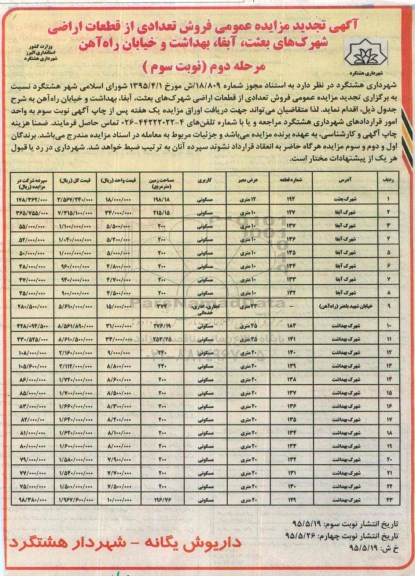 آگهی تجدید مزایده عمومی فروش تعدادی از قطعات اراضی
شهرک‌های بعثت، آیفا، بهداشت و خیابان راه‌آهن
مرحله دوم (نوبت سوم)
وزارت کشور
استانداری البرز
شهرداری هشتگرد
شهرداری هشتگرد
شهرداری هشتگرد در نظر دارد به استناد مجوز شماره ۱۸/۸۰۹/ش مورخ ۱۳۹۵/۴/۱ شورای اسلامی شهر هشتگرد نسبت
به برگزاری تجدید مزایده عمومی فروش تعدادی از قطعات اراضی شهرک‌های بعثت، آیفا، بهداشت و خیابان راه‌آهن به شرح
جدول ذیل، اقدام نماید. لذا متقاضیان می‌توانند جهت دریافت اوراق مزایده یک هفته پس از چاپ آگهی نوبت سوم به واحد
امور قراردادهای شهرداری هشتگرد مراجعه و یا با شماره تلفن‌های ۴-۴۴۲۲۲۰۲۲-۰۲۶ تماس حاصل فرمایند. ضمنا هزینه
چاپ آگهی و کارشناسی، به عهده برنده مزایده می‌باشد و جزئیات مربوط به معامله در اسناد مزایده مندرج می‌باشد. برندگان
اول و دوم و سوم مزایده هرگاه حاضر به انعقاد قرارداد نشوند سپرده آنان به ترتیب ضبط خواهد شد. شهرداری در رد یا قبول
هر یک از پیشنهادات مختار است.
ردیف آدرس شماره قطعه عرض معبر کاربری مساحت زمین (مترمربع) قیمت واحد (ریال) قیمت کل (ریال) سپرده شرکت در مزایده (ریال)
۱ شهرک بعثت ۱۹۲ ۱۲ متری مسکونی ۱۹۸/۱۸ ۱۸/۰۰۰/۰۰۰ ۳/۵۶۷/۲۴۰/۰۰۰ ۱۷۸/۳۶۲/۰۰۰
۲ شهرک آیفا ۱۲۷ ۱۰ متری مسکونی ۲۱۵/۱۵ ۳۴/۰۰۰/۰۰۰ ۷/۳۱۵/۱۰۰/۰۰۰ ۳۶۵/۷۵۵/۰۰۰
۳ شهرک آیفا ۱۳۷ ۱۰ متری مسکونی ۲۰۰ ۵/۵۰۰/۰۰۰ ۱/۱۰۰/۰۰۰/۰۰۰ ۵۵/۰۰۰/۰۰۰
۴ شهرک آیفا ۱۳۶ ۱۰ متری مسکونی ۲۰۰ ۵/۲۰۰/۰۰۰ ۱/۰۴۰/۰۰۰/۰۰۰ ۵۲/۰۰۰/۰۰۰
۵ شهرک آیفا ۱۳۵ ۱۰ متری مسکونی ۲۰۰ ۵/۰۰۰/۰۰۰ ۱/۰۰۰/۰۰۰/۰۰۰ ۵۰/۰۰۰/۰۰۰
۶ شهرک آیفا ۱۳۴ ۱۰ متری مسکونی ۲۰۰ ۴/۸۰۰/۰۰۰ ۹۶۰/۰۰۰/۰۰۰ ۴۸/۰۰۰/۰۰۰
۷ شهرک آیفا ۱۳۳ ۱۰ متری مسکونی ۲۰۰ ۴/۷۰۰/۰۰۰ ۹۴۰/۰۰۰/۰۰۰ ۴۷/۰۰۰/۰۰۰
۸ شهرک آیفا ۱۳۲ ۱۰ متری مسکونی ۲۰۰ ۴/۵۰۰/۰۰۰ ۹۰۰/۰۰۰/۰۰۰ ۴۵/۰۰۰/۰۰۰
۹ خیابان شهید باهنر (راه‌آهن) ۲۴ متری تجاری، اداری، خدماتی ۳۷۴ ۱۵/۰۰۰/۰۰۰ ۵/۶۱۰/۰۰۰/۰۰۰ ۲۸۰/۵۰۰/۰۰۰
۱۰ شهرک بهداشت ۱۸۳ ۲۵ متری مسکونی ۲۷۶/۱۹ ۳۱/۰۰۰/۰۰۰ ۸/۵۶۱/۸۹۰/۰۰۰ ۴۲۸/۰۹۴/۵۰۰
۱۱ شهرک بهداشت ۱۴۱ ۲۵ متری مسکونی ۲۵۳/۲۵ ۳۴/۰۰۰/۰۰۰ ۸/۶۱۰/۵۰۰/۰۰۰ ۴۳۰/۵۲۵/۰۰۰
۱۲ شهرک بهداشت ۱۴۰ ۲۰ متری مسکونی ۲۴۰ ۹/۰۰۰/۰۰۰ ۲/۱۶۰/۰۰۰/۰۰۰ ۱۰۸/۰۰۰/۰۰۰
۱۳ شهرک بهداشت ۱۳۹ ۲۰ متری مسکونی ۲۴۰ ۸/۸۰۰/۰۰۰ ۲/۱۱۲/۰۰۰/۰۰۰ ۱۰۵/۶۰۰/۰۰۰
۱۴ شهرک بهداشت ۱۳۸ ۲۰ متری مسکونی ۲۰۰ ۸/۶۰۰/۰۰۰ ۱/۷۲۰/۰۰۰/۰۰۰ ۸۶/۰۰۰/۰۰۰
۱۵ شهرک بهداشت ۱۳۷ ۲۰ متری مسکونی ۲۰۰ ۸/۵۰۰/۰۰۰ ۱/۷۰۰/۰۰۰/۰۰۰ ۸۵/۰۰۰/۰۰۰
۱۶ شهرک بهداشت ۱۳۶ ۲۰ متری مسکونی ۲۰۰ ۸/۳۰۰/۰۰۰ ۱/۶۶۰/۰۰۰/۰۰۰ ۸۳/۰۰۰/۰۰۰
۱۷ شهرک بهداشت ۱۳۵ ۲۰ متری مسکونی ۲۰۰ ۸/۲۰۰/۰۰۰ ۱/۶۴۰/۰۰۰/۰۰۰ ۸۲/۰۰۰/۰۰۰
۱۸ شهرک بهداشت ۱۳۴ ۲۰ متری مسکونی ۲۰۰ ۸/۱۰۰/۰۰۰ ۱/۶۲۰/۰۰۰/۰۰۰ ۸۱/۰۰۰/۰۰۰
۱۹ شهرک بهداشت ۱۳۳ ۲۰ متری مسکونی ۲۰۰ ۸/۰۰۰/۰۰۰ ۱/۶۰۰/۰۰۰/۰۰۰ ۸۰/۰۰۰/۰۰۰
۲۰ شهرک بهداشت ۱۳۲ ۲۰ متری مسکونی ۲۰۰ ۷/۹۰۰/۰۰۰ ۱/۵۸۰/۰۰۰/۰۰۰ ۷۹/۰۰۰/۰۰۰
۲۱ شهرک بهداشت ۱۳۱ ۲۰ متری مسکونی ۲۰۰ ۷/۷۰۰/۰۰۰ ۱/۵۴۰/۰۰۰/۰۰۰ ۷۷/۰۰۰/۰۰۰
۲۲ شهرک بهداشت ۱۳۰ ۲۰ متری مسکونی ۲۰۰ ۷/۵۰۰/۰۰۰ ۱/۵۰۰/۰۰۰/۰۰۰ ۷۵/۰۰۰/۰۰۰
۲۳ شهرک بهداشت ۱۲۹ ۲۰ متری مسکونی ۱۹۶/۷۶ ۱۰/۰۰۰/۰۰۰ ۱/۹۶۷/۶۰۰/۰۰۰ ۹۸/۳۸۰/۰۰۰
تاریخ انتشار نوبت سوم: ۹۵/۵/۱۹
تاریخ انتشار نوبت چهارم: ۹۵/۵/۲۶
خ ش: ۹۵/۵/۱۹
داریوش یگانه - شهردار هشتگرد